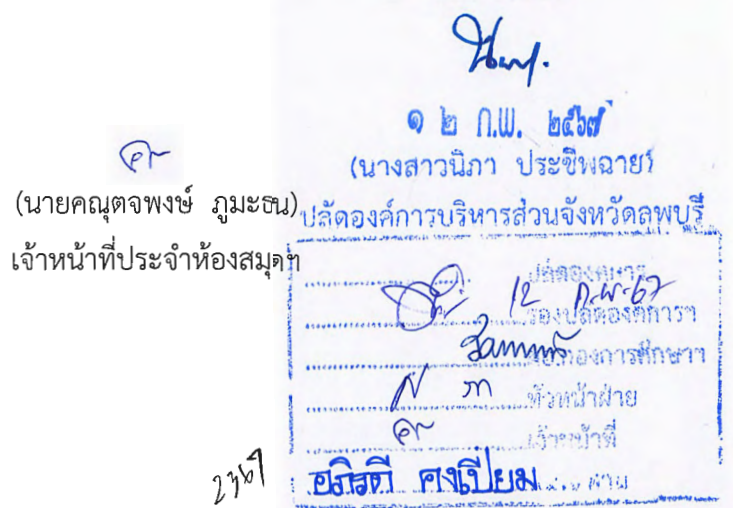 ๑ ๒ ก.พ. ๒๕๖๗
(นางสาวนิภา ประชีพฉาย)
ปลัดองค์การบริหารส่วนจังหวัดลพบุรี
(นายคณุตจพงษ์ ภูมะธน)
เจ้าหน้าที่ประจำห้องสมุดฯ
ปลัดองค์การฯ
12 ก.พ. 67
รองปลัดองค์การฯ
ผอ.กองการศึกษาฯ
หัวหน้าฝ่าย
เจ้าหน้าที่
อภิรดี คงเปี่ยม